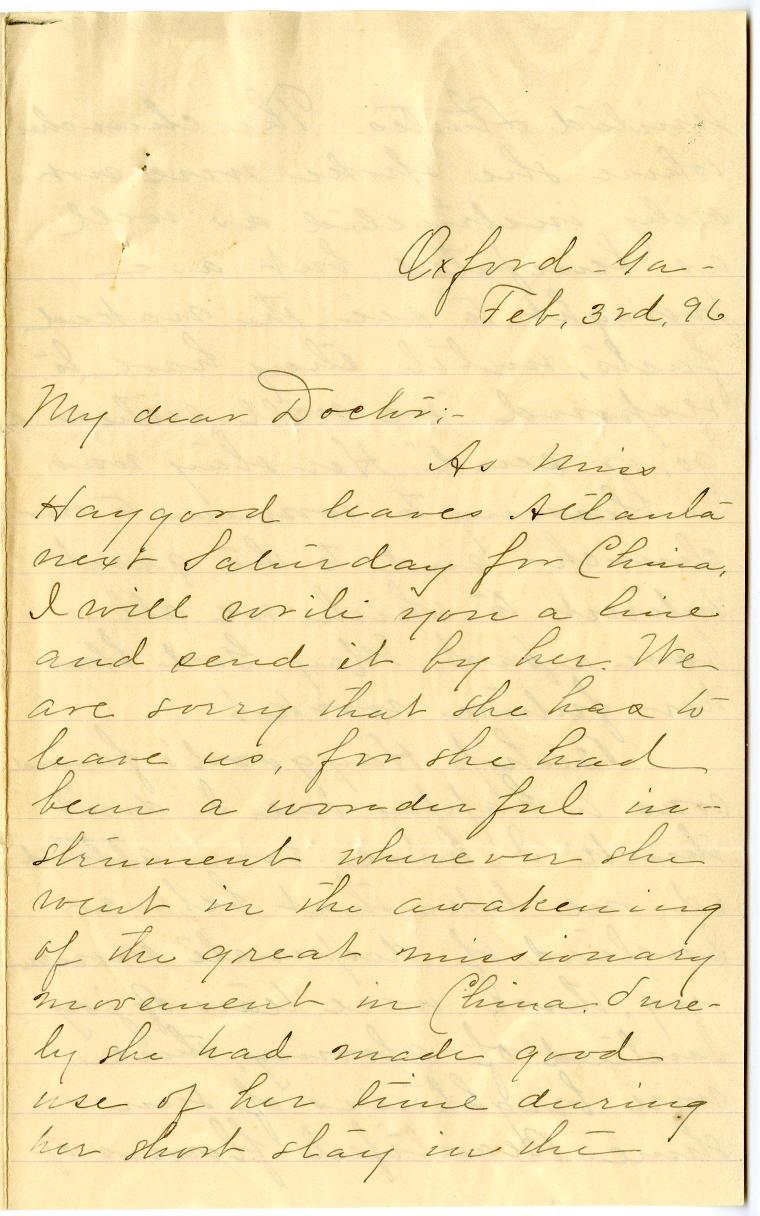 Oxford - Ga -
Feb, 3rd, 96
My dear Doctor:-
As Miss
Haygord leaves Atlanta
next Saturday for China,
I will write you a line
and send it by her. We
are sorry that she has to
leave us, for she had
been a wonderful in-
strument wherever she
went in the awakening
of the great missionary
movement in China. Sure-
ly she had made good
use of her time during
her short stay in the